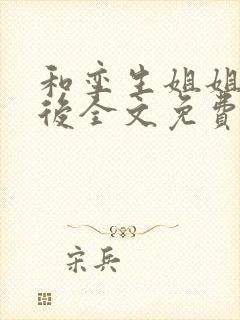 和孪生姐姐
後全文免費
宋兵